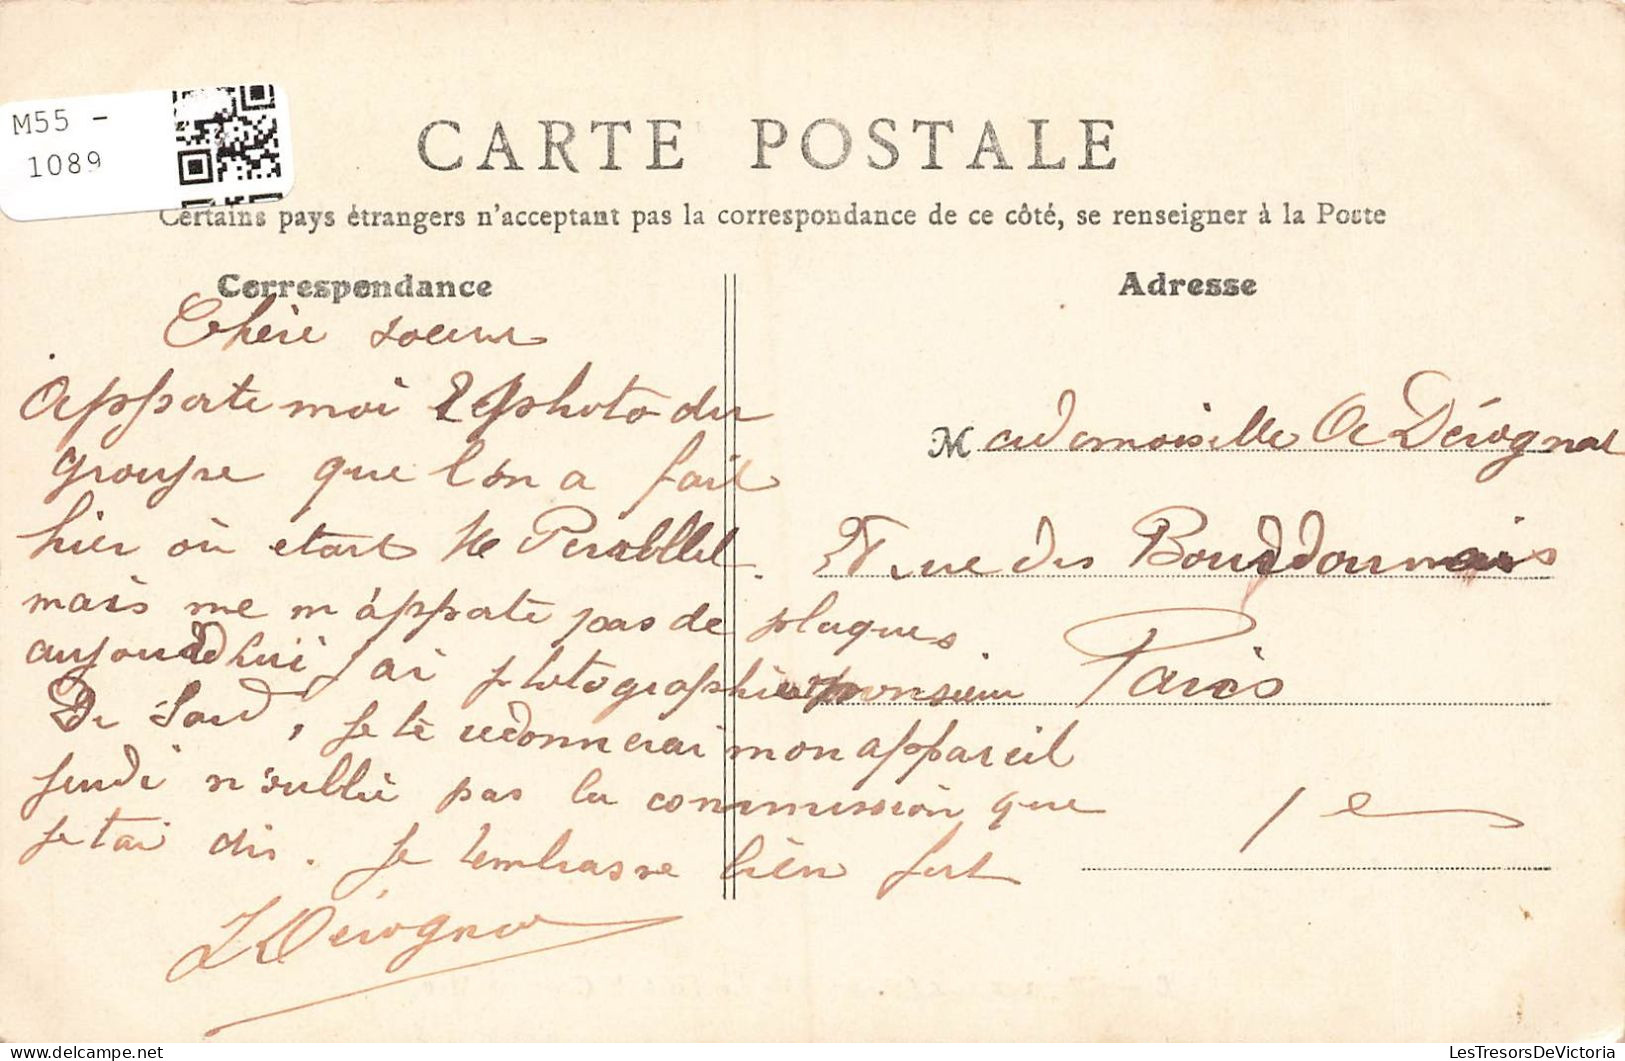 M55 -
1089
CARTE POSTALE
Certains pays étrangers n'acceptant pas la correspondance de ce côté, se renseigner à la Poste
Correspondance
Adresse
Chère soeur
Apporte moi photo du
groupe que l'on a fait
hier où etait
mais ne m'apporte pas de plaques
aujourdhui j'ai photographié monsieur
De , je te redonnerai mon appareil
jeudi n'oublie pas la commission que
je tai dis. Je t'embrasse bien fort
Dérognat
Mademoiselle Dérognat
rue des Bourdonnais
Paris
1 e
LesTresorsDeVictoria